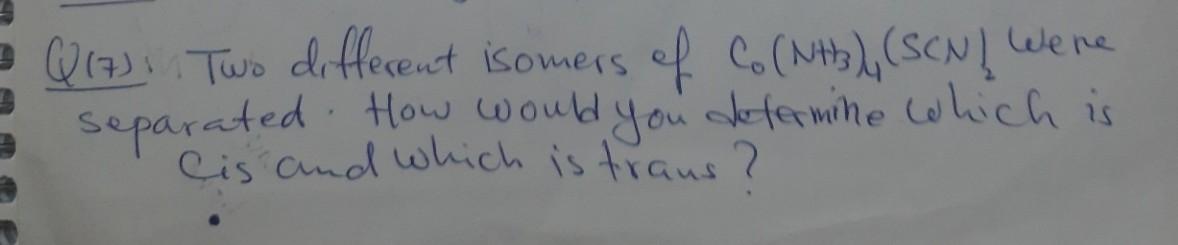 Q(7): Two different isomers of Co(NH3)4(SCN)2 were
separated. How would you determine which is
Cis and which is trans?